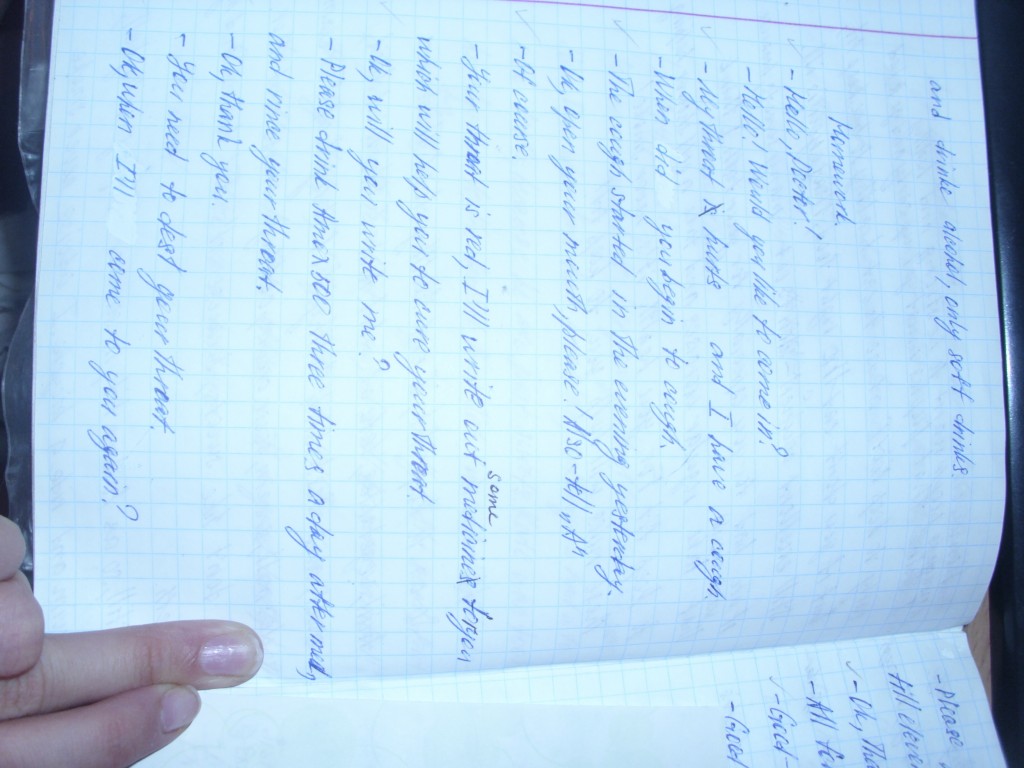 and drinke alcohol, only soft drinks.
- Hello, Doctor!
- Hello! Would you like to come in?
- My throat hurts and I have a cough
- When did you begin to cough.
- The cough started in the evening yesterday.
- Ok, open your mouth, please! Also-All „A"
- Of course.
- Your throat is red, I'll write out some medicine for you
which will help you to cure your throat.
- Ok, will you write me?
- Please drink 500 three times a day after
and rince your throat.
- Ok, thank you.
- You need to dest your throat.
- Ok, when I'll come to you again?
- Please
till
- Ok, Tha
- All
- Good-
- Good